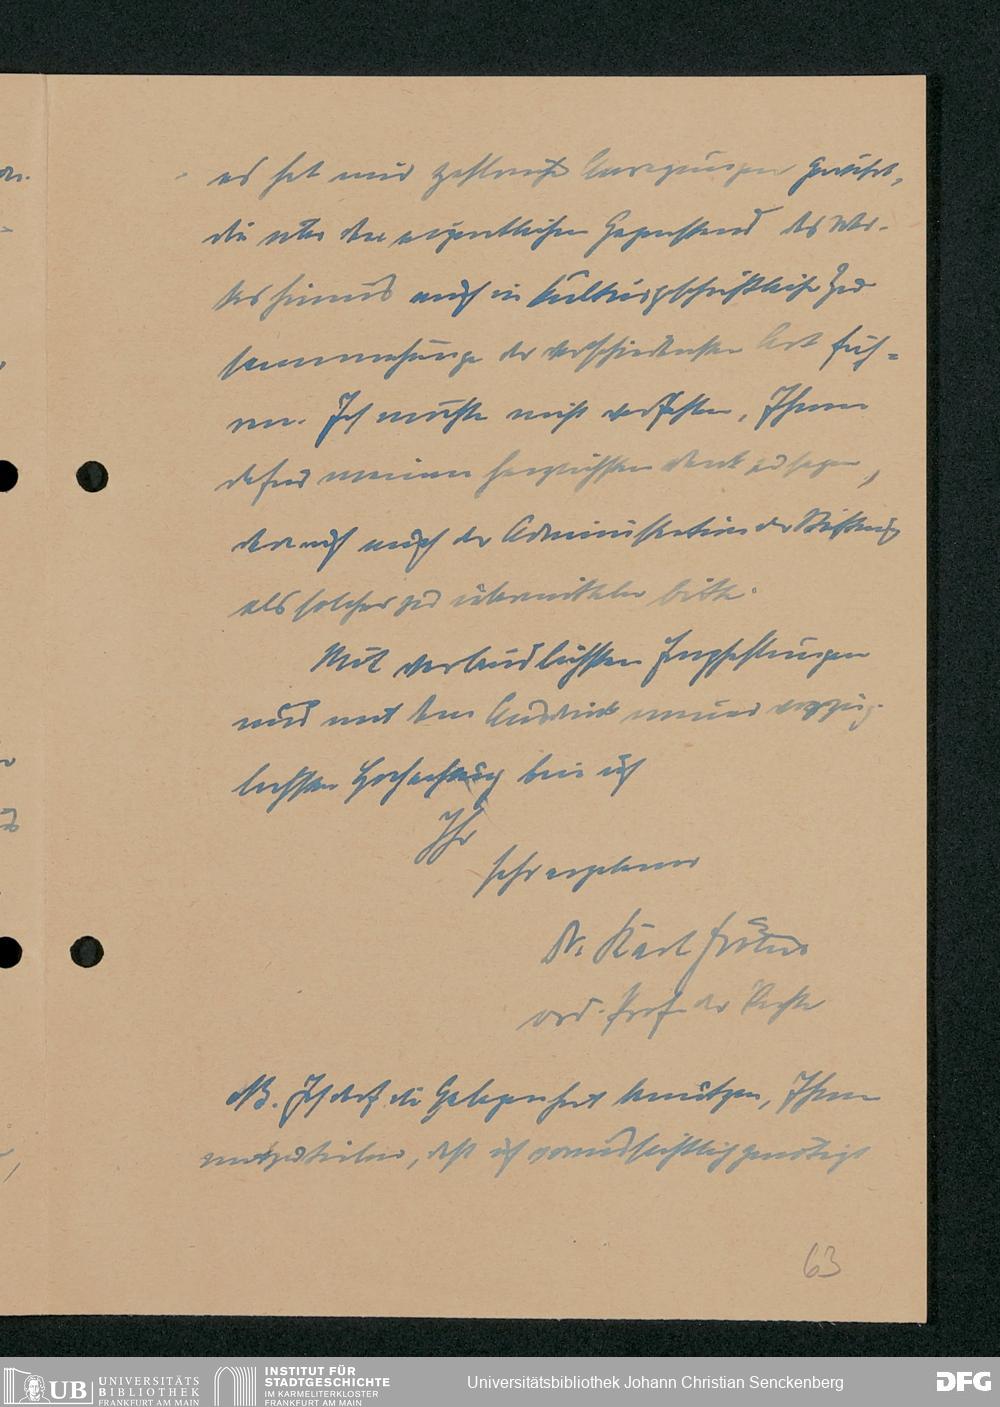 es hat mir zahlreiche Anregungen gewährt,
die über den eigentlichen Gegenstand des Wer-
kes hinaus auch in kulturgeschichtliche Zu-
sammenhänge der verschiedensten Art füh-
ren. Ich möchte nicht verfehlen, Ihnen
dafür meinen herzlichsten Dank zu sagen,
den ich auch der Administration der Stiftung
als solcher zu übermitteln bitte.
Mit verbindlichsten Empfehlungen
und mit dem Ausdruck meiner vorzüg-
lichsten Hochachtung bin ich
Ihr
sehr ergebener
Dr. Karl Frölich
ord. Prof. der Rechte
NB. Ich darf die Gelegenheit benützen, Ihnen
mitzuteilen, daß ich voraussichtlich genötigt
63
UB UNIVERSITÄTS
BIBLIOTHEK
FRANKFURT AM MAIN
INSTITUT FÜR
STADTGESCHICHTE
IM KARMELITERKLOSTER
FRANKFURT AM MAIN
Universitätsbibliothek Johann Christian Senckenberg
DFG